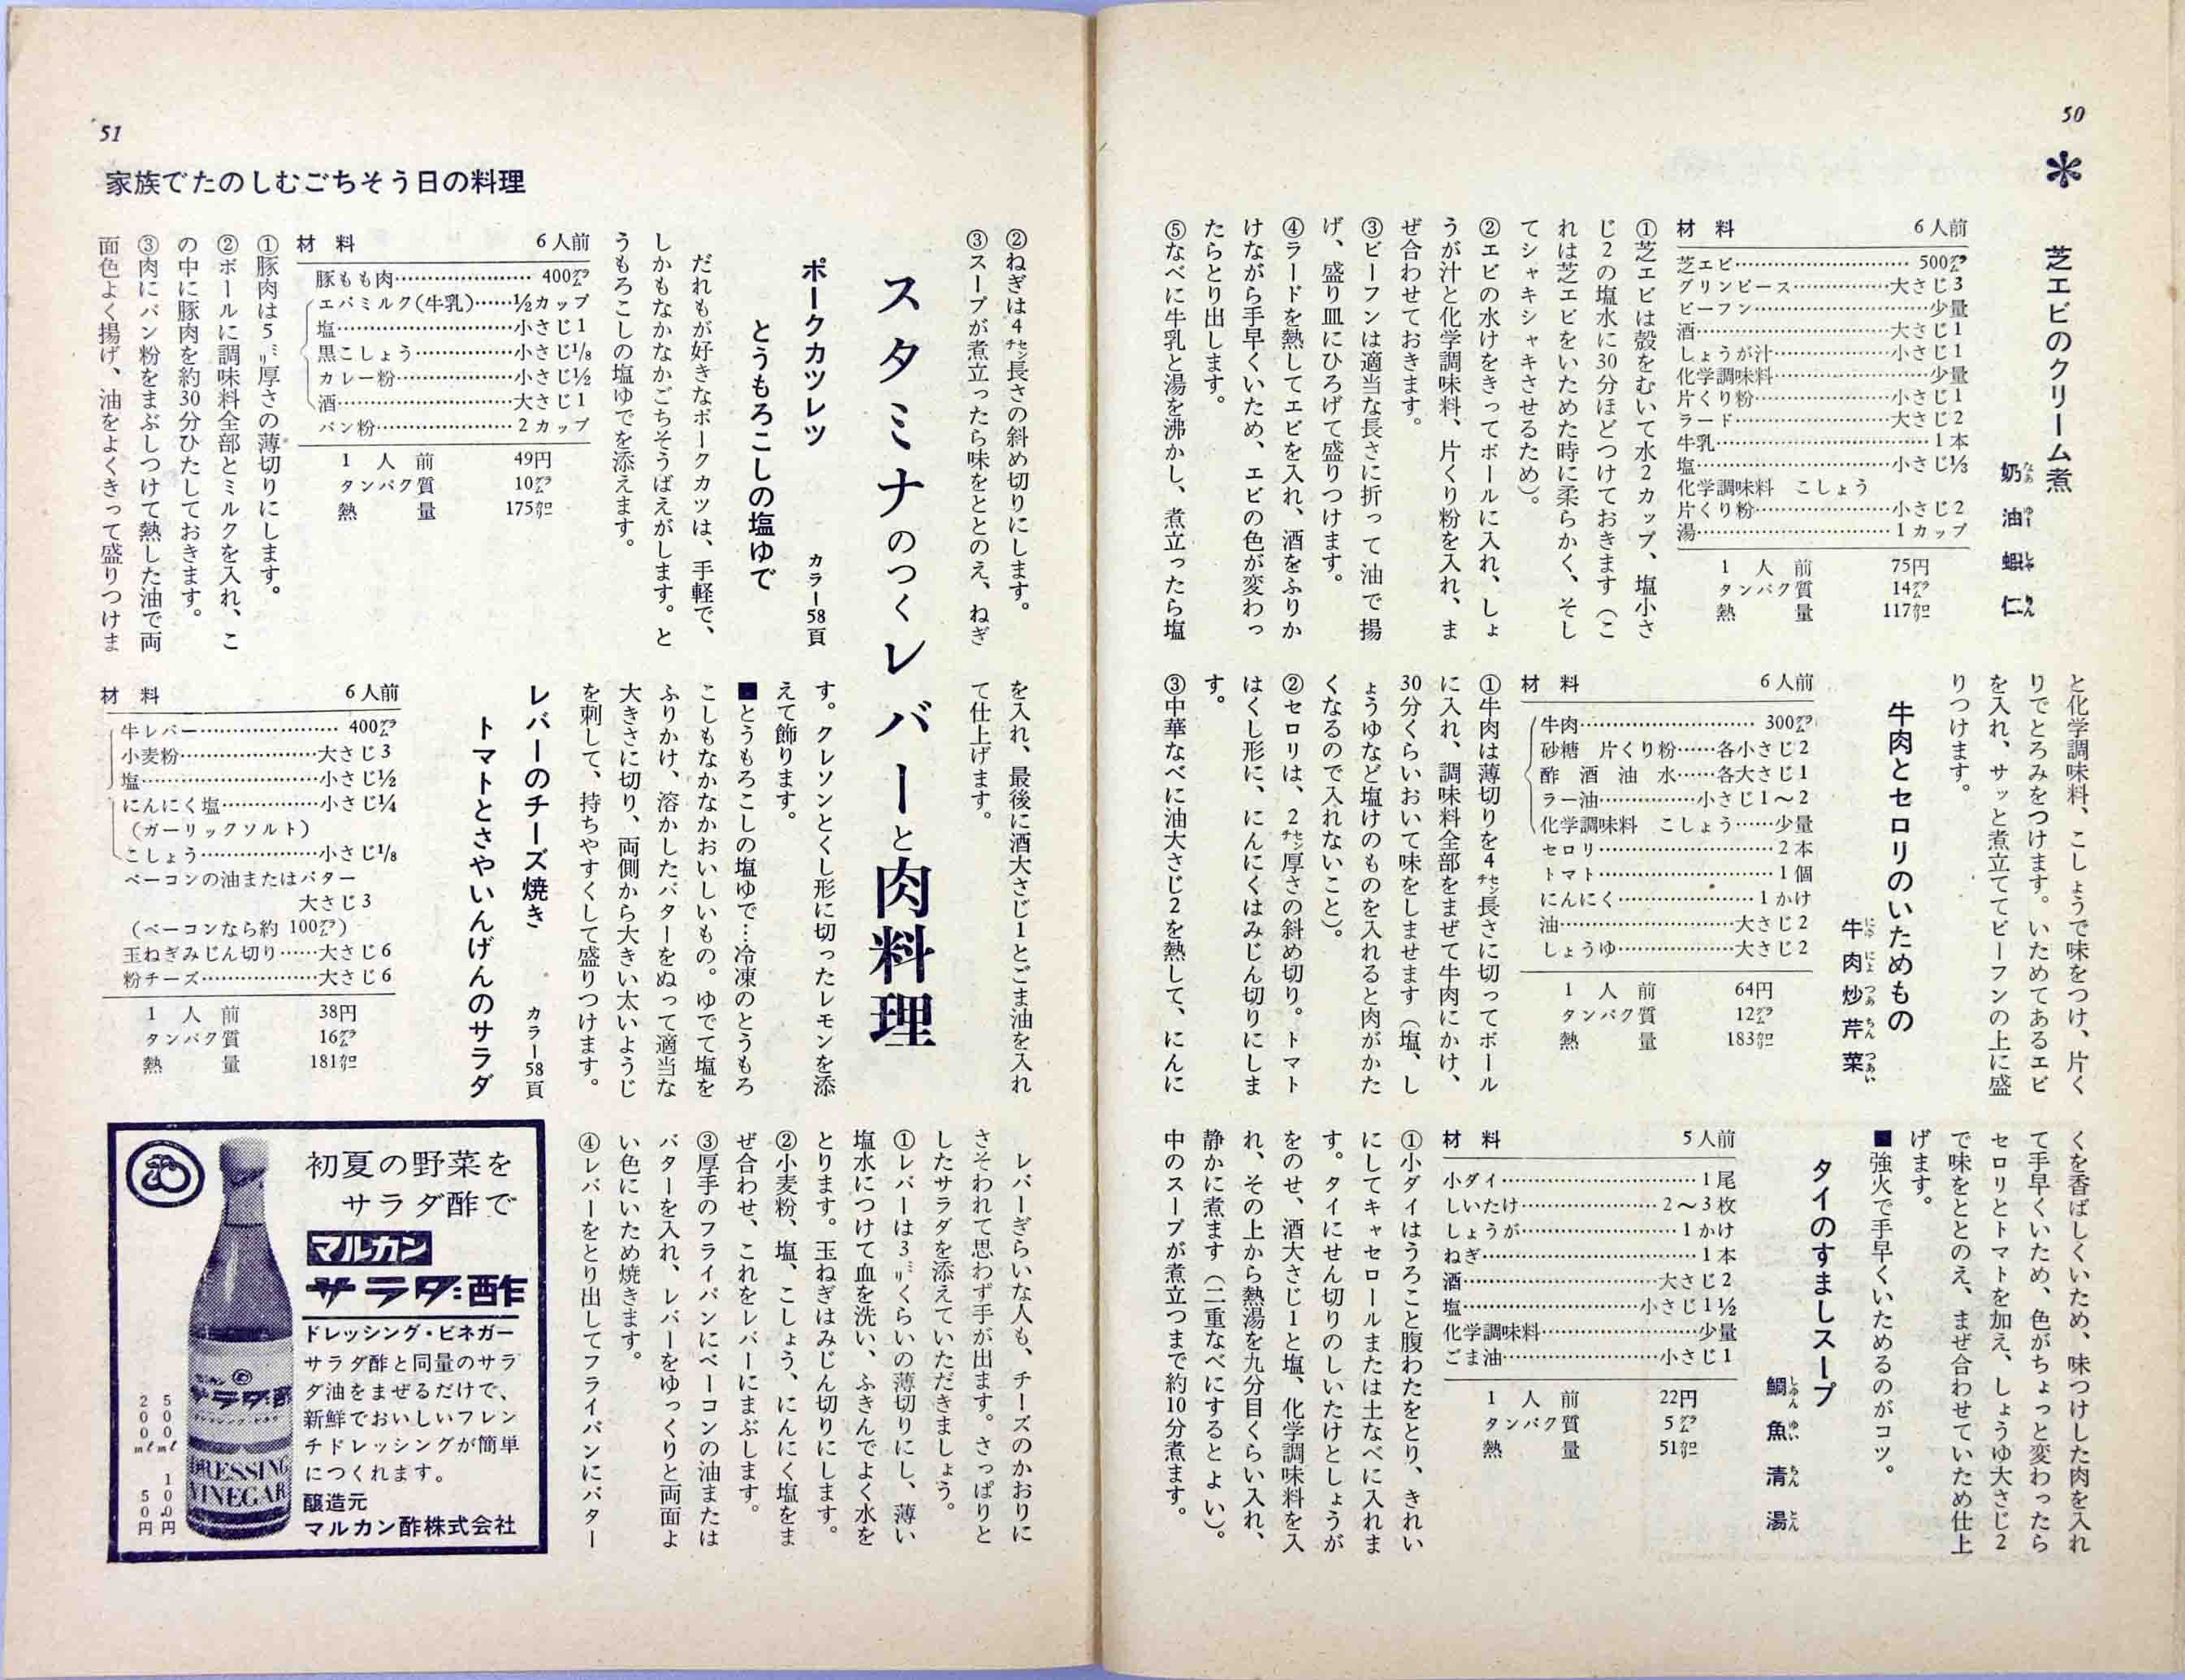 50
＊
芝エビのクリーム煮
奶油蝦仁
なあ ゆー しゃ れん
材料 6人前
芝エビ…………500㌘
グリンピース…………大さじ3
ビーフン…………少量
酒…………大さじ1
しょうが汁…………小さじ1
化学調味料…………少量
片くり粉…………小さじ1
ラード…………大さじ2
牛乳…………1本
塩…………小さじ⅓
化学調味料 こしょう
片くり粉…………小さじ2
湯…………1カップ
1人前 75円
タンパク質 14㌘
熱量 117㌍
①芝エビは殻をむいて水2カップ、塩小さ
じ2の塩水に30分ほどつけておきます（こ
れは芝エビをいためた時に柔らかく、そし
てシャキシャキさせるため）。
②エビの水けをきってボールに入れ、しょ
うが汁と化学調味料、片くり粉を入れ、ま
ぜ合わせておきます。
③ビーフンは適当な長さに折って油で揚
げ、盛り皿にひろげて盛りつけます。
④ラードを熱してエビを入れ、酒をふりか
けながら手早くいため、エビの色が変わっ
たらとり出します。
⑤なべに牛乳と湯を沸かし、煮立ったら塩
と化学調味料、こしょうで味をつけ、片く
りでとろみをつけます。いためてあるエビ
を入れ、サッと煮立ててビーフンの上に盛
りつけます。
牛肉とセロリのいためもの
牛肉炒芹菜
にゆ にょ つあ ちん つあい
材料 6人前
牛肉…………300㌘
砂糖 片くり粉……各小さじ2
酢 酒 油 水……各大さじ1
ラー油…………小さじ1〜2
化学調味料 こしょう……少量
セロリ…………2本
トマト…………1個
にんにく…………1かけ
油…………大さじ2
しょうゆ…………大さじ2
1人前 64円
タンパク質 12㌘
熱量 183㌍
①牛肉は薄切りを4㌢長さに切ってボール
に入れ、調味料全部をまぜて牛肉にかけ、
30分くらいおいて味をしませます（塩、し
ょうゆなど塩けのものを入れると肉がかた
くなるので入れないこと）。
②セロリは、2㌢厚さの斜め切り。トマト
はくし形に、にんにくはみじん切りにしま
す。
③中華なべに油大さじ2を熱して、にんに
くを香ばしくいため、味つけした肉を入れ
て手早くいため、色がちょっと変わったら
セロリとトマトを加え、しょうゆ大さじ2
で味をととのえ、まぜ合わせていため仕上
げます。
■強火で手早くいためるのがコツ。
タイのすましスープ
鯛魚清湯
しゅん ゆい ちん とん
材料 5人前
小ダイ…………1尾
しいたけ…………2〜3枚
しょうが…………1かけ
ねぎ…………1本
酒…………大さじ2
塩…………小さじ1½
化学調味料…………少量
ごま油…………小さじ1
1人前 22円
タンパク質 5㌘
熱量 51㌍
①小ダイはうろこと腹わたをとり、きれい
にしてキャセロールまたは土なべに入れま
す。タイにせん切りのしいたけとしょうが
をのせ、酒大さじ1と塩、化学調味料を入
れ、その上から熱湯を九分目くらい入れ、
静かに煮ます（二重なべにするとよい）。
中のスープが煮立つまで約10分煮ます。
51
家族でたのしむごちそう日の料理
②ねぎは4㌢長さの斜め切りにします。
③スープが煮立ったら味をととのえ、ねぎ
を入れ、最後に酒大さじ1とごま油を入れ
て仕上げます。
スタミナのつくレバーと肉料理
ポークカツレツ
とうもろこしの塩ゆで
カラー58頁
だれもが好きなポークカツは、手軽で、
しかもなかなかごちそうばえがします。と
うもろこしの塩ゆでを添えます。
材料 6人前
豚もも肉…………400㌘
エバミルク(牛乳)……½カップ
塩…………小さじ1
黒こしょう…………小さじ⅛
カレー粉…………小さじ½
酒…………大さじ1
パン粉…………2カップ
1人前 49円
タンパク質 10㌘
熱量 175㌍
①豚肉は5㍉厚さの薄切りにします。
②ボールに調味料全部とミルクを入れ、こ
の中に豚肉を約30分ひたしておきます。
③肉にパン粉をまぶしつけて熱した油で両
面色よく揚げ、油をよくきって盛りつけま
す。クレソンとくし形に切ったレモンを添
えて飾ります。
■とうもろこしの塩ゆで…冷凍のとうもろ
こしもなかなかおいしいもの。ゆでて塩を
ふりかけ、溶かしたバターをぬって適当な
大きさに切り、両側から大きい太いようじ
を刺して、持ちやすくして盛りつけます。
レバーのチーズ焼き
トマトとさやいんげんのサラダ
カラー58頁
材料 6人前
牛レバー…………400㌘
小麦粉…………大さじ3
塩…………小さじ½
にんにく塩…………小さじ¼
(ガーリックソルト)
こしょう…………小さじ⅛
ベーコンの油またはバター
大さじ3
(ベーコンなら約100㌘)
玉ねぎみじん切り……大さじ6
粉チーズ…………大さじ6
1人前 38円
タンパク質 16㌘
熱量 181㌍
レバーぎらいな人も、チーズのかおりに
さそわれて思わず手が出ます。さっぱりと
したサラダを添えていただきましょう。
①レバーは3㍉くらいの薄切りにし、薄い
塩水につけて血を洗い、ふきんでよく水を
とります。玉ねぎはみじん切りにします。
②小麦粉、塩、こしょう、にんにく塩をま
ぜ合わせ、これをレバーにまぶします。
③厚手のフライパンにベーコンの油または
バターを入れ、レバーをゆっくりと両面よ
い色にいため焼きます。
④レバーをとり出してフライパンにバター
初夏の野菜を
サラダ酢で
マルカン
サラダ酢
ドレッシング・ビネガー
サラダ酢と同量のサラ
ダ油をまぜるだけで、
新鮮でおいしいフレン
チドレッシングが簡単
につくれます。
醸造元
マルカン酢株式会社
500ml 100円
200ml 50円
サラダ酢
DRESSING
VINEGAR